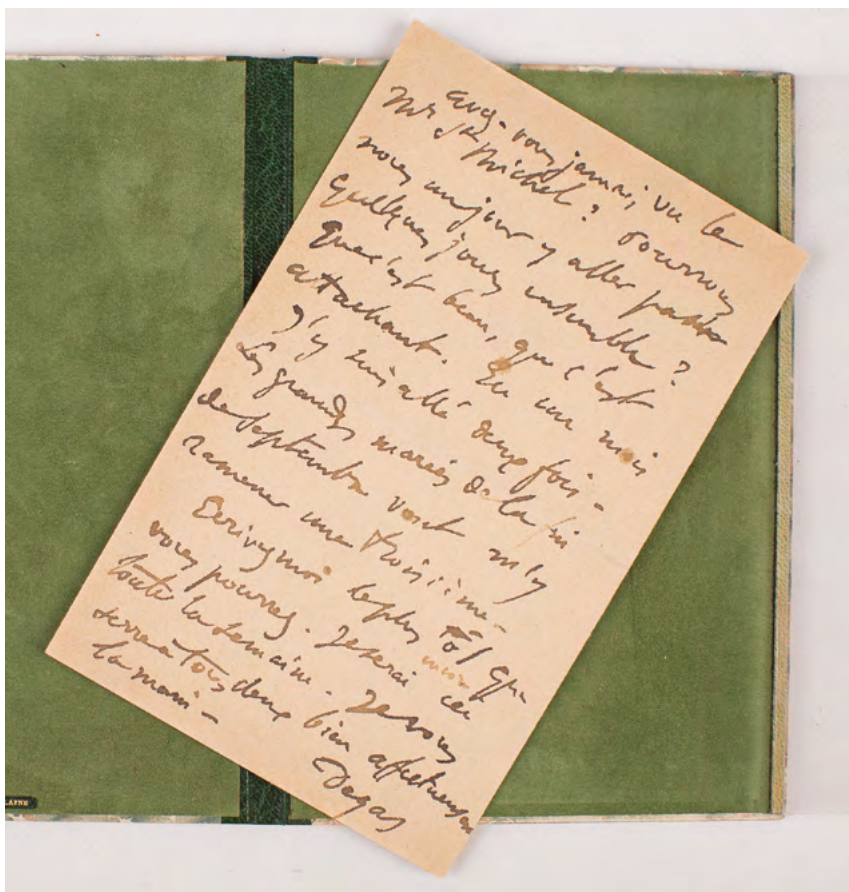 avez-vous jamais vu le
Mt St Michel ? Pourrions
nous un jour y aller passer
quelques jours ensemble ?
que c'est beau, que c'est
attachant. En un mois
j'y suis allé deux fois -
Les grandes marées de la fin
de septembre vont m'y
ramener une troisième -
Ecrivez moi le plus tôt que
vous pourrez. Je serai ici
toute la semaine. Je vous
serre à tous deux bien affectueusement
la main -
Degas